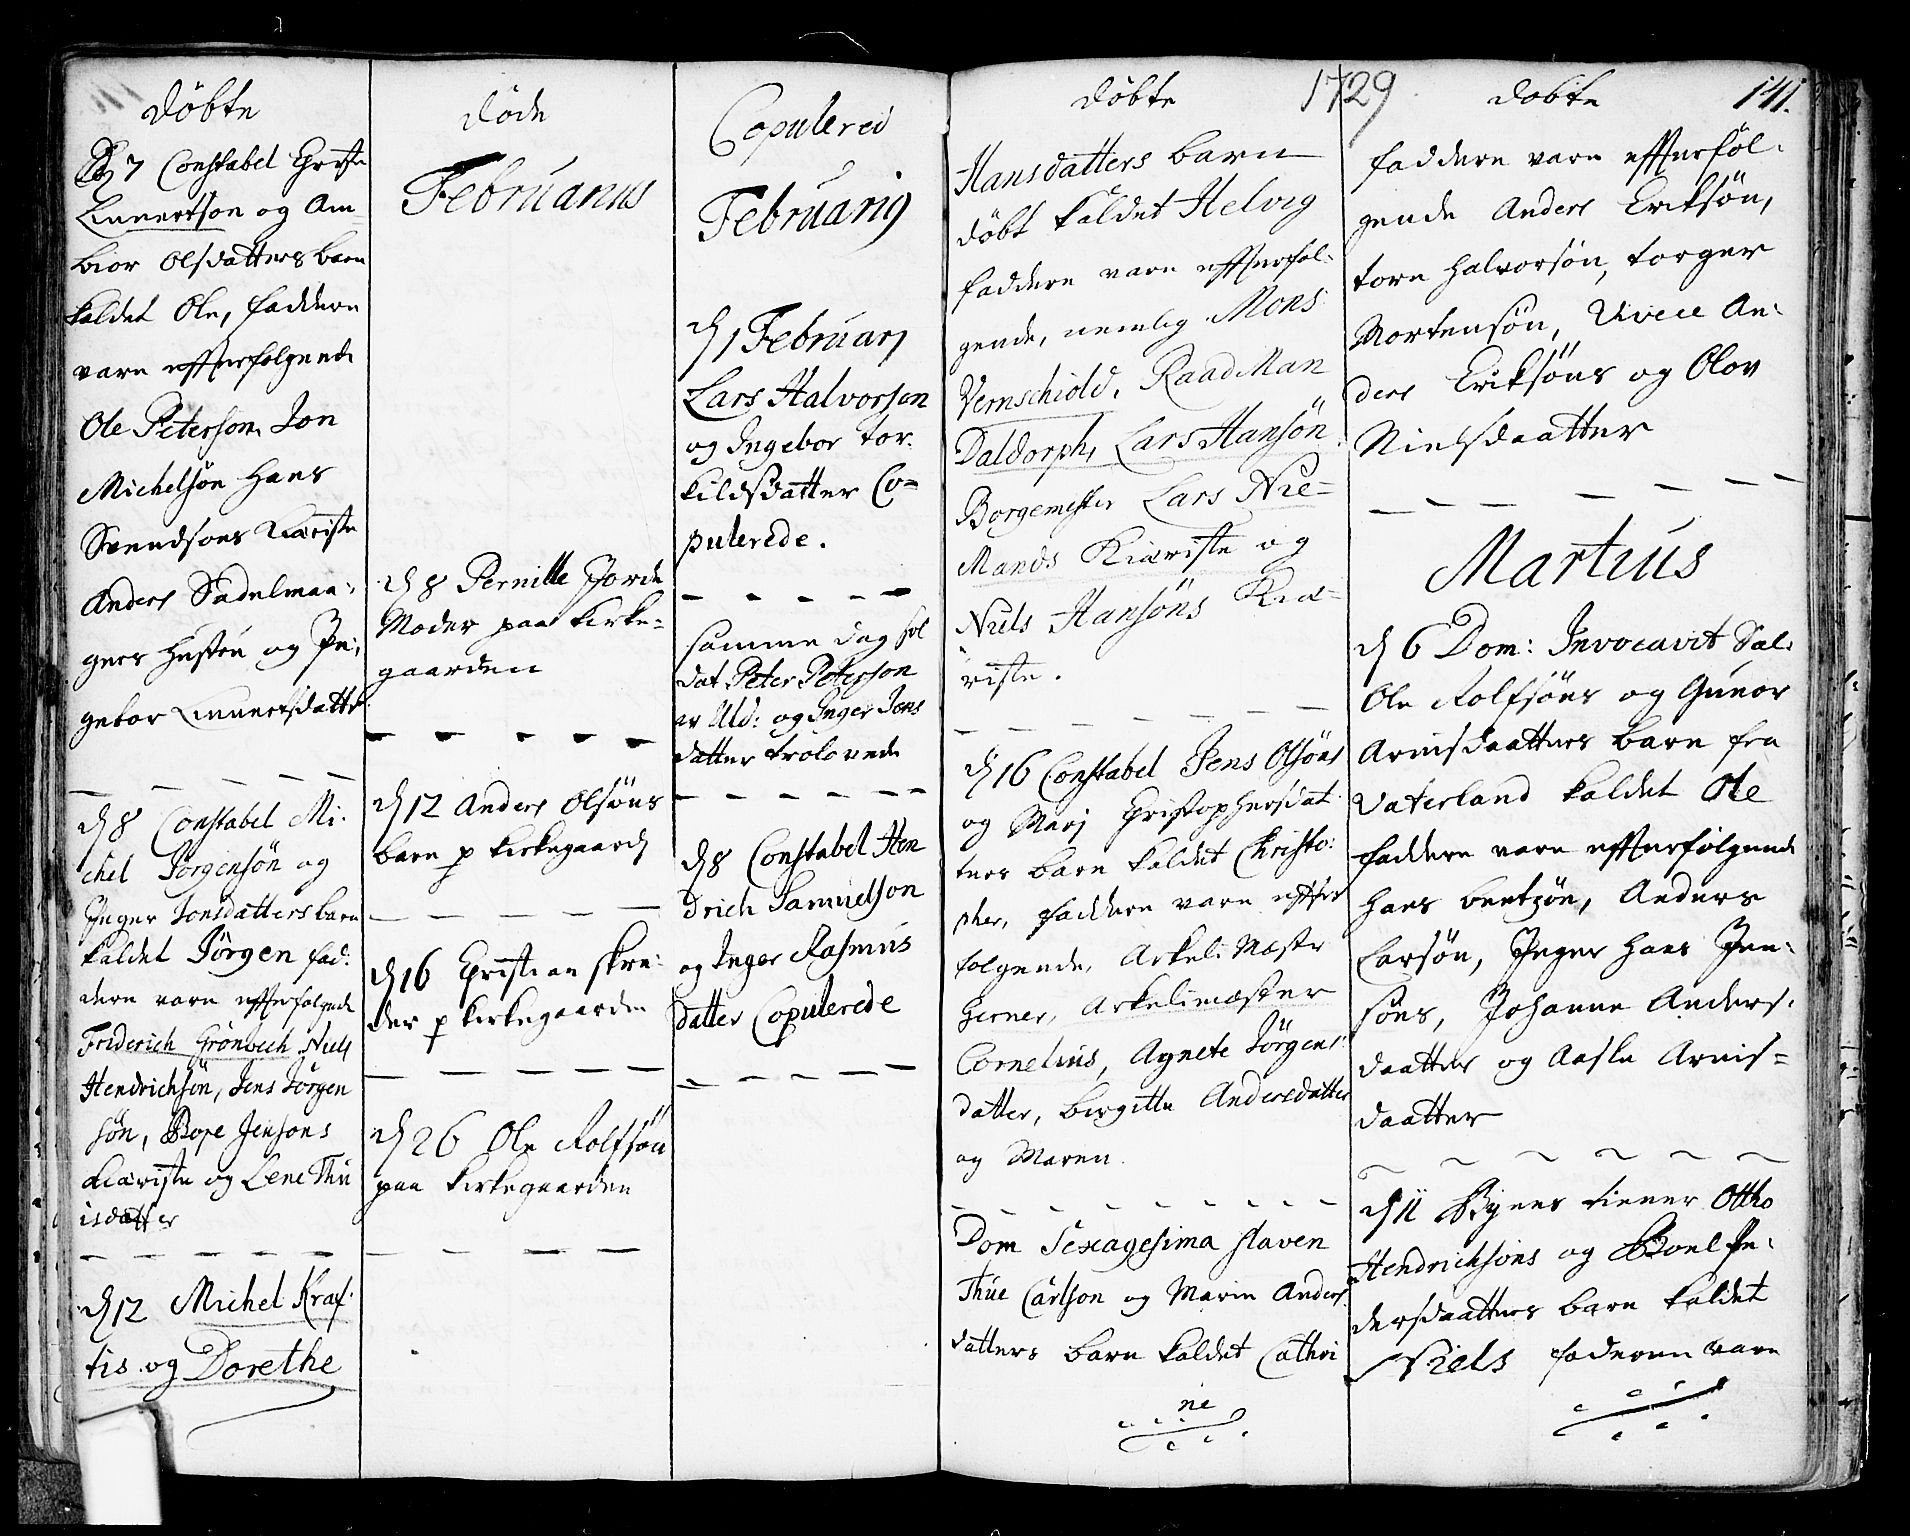 Döbte
7 Constabel Christen
Lennertson og Am
bior Olsdatters barn
kaldet Ole, faddere
vare effterfolgende
Ole Peterson, Jon
Michelsön Hans
Svendsons Kieriste
Anders Sadelmaa:
gers hustru og In,
gebor Lennertsdatter
d 8 Constabel Mi:
chel Jörgensön og
Inger Jonsdatters barn
kaldet Jörgen fad:
dere vare effterfolgende
Friderich Grönbech, Niels
Hendrichsön, Jens Jörgen
sön, Bope Jensons
Kieriste og Lene Thu
isdatter
d 12 Michel Kraf:
tis og Dorethe
Döde
Februarius
d 8 Pernille Jorde
Moder paa kirke=
gaarden
d 12 Anders Olsöns
barn p kirkegaard
d 16 Christian skre:
der p kirkegaarden
d 26 Ole Rolfsön
paa kirkegaarden
Copulered
Februarig
d 1 Februarj
Lars Halvorson
og Ingebor Tor:
kildsdatter Co=
pulerede.
samme dag sol
dat Peter Peterson
og Inger Jens
datter trolovede
d 8 Constabel Hen
drich Samuelson
og Inger Rasmus
datter Copulerede
Döbte 1729
Hansdatters barn
döbt kaldet Helvig
faddere vare effterföl:
gende, nemlig Mons:
Vernschiold, Raad Man
Daldorph, Lars Hansön
Borgemester Lars Nie=
Mands Kieriste og
Niels Hansöns Kie=
riste.
d 16 Constabel Jens Olsöns
og Marj Christophersdat
ters barn kaldet Christo:
pher, faddere vare effter
folgende, Arkeli Mester
Herner, Arkelimester
Cornelius, Agnete Jörgens
datter, birgitte Andersdatter
og Maren.
Dom Sexagesima slaven
Thüe Carlson og Maren Anders
datters barn kaldet Cathri
ne
Döbte 141.
faddere vare effterföl:
gende Anders Eriksön,
Tore Halvorsön, Torger
Mortensön, Vivece An:
ders Eriksöns og Olov
Nielsdaatter
Martius
d 6 Dom: Invocavit Sal:
Ole Rolfsöns og Gunor
Arnisdaatters barn fra
Vaterland kaldet Ole
faddere vare effterfölgende
Hans bentzön, Anders
Larsön, Inger Hans Jen:
söns, Johanne Anders:
daatter og Aasle Arnis=
daatter
d 11 Byens tiener Ottho
Hendrichsöns og Boel Pe:
dersdaatters barn kaldet
Niels faderne vare